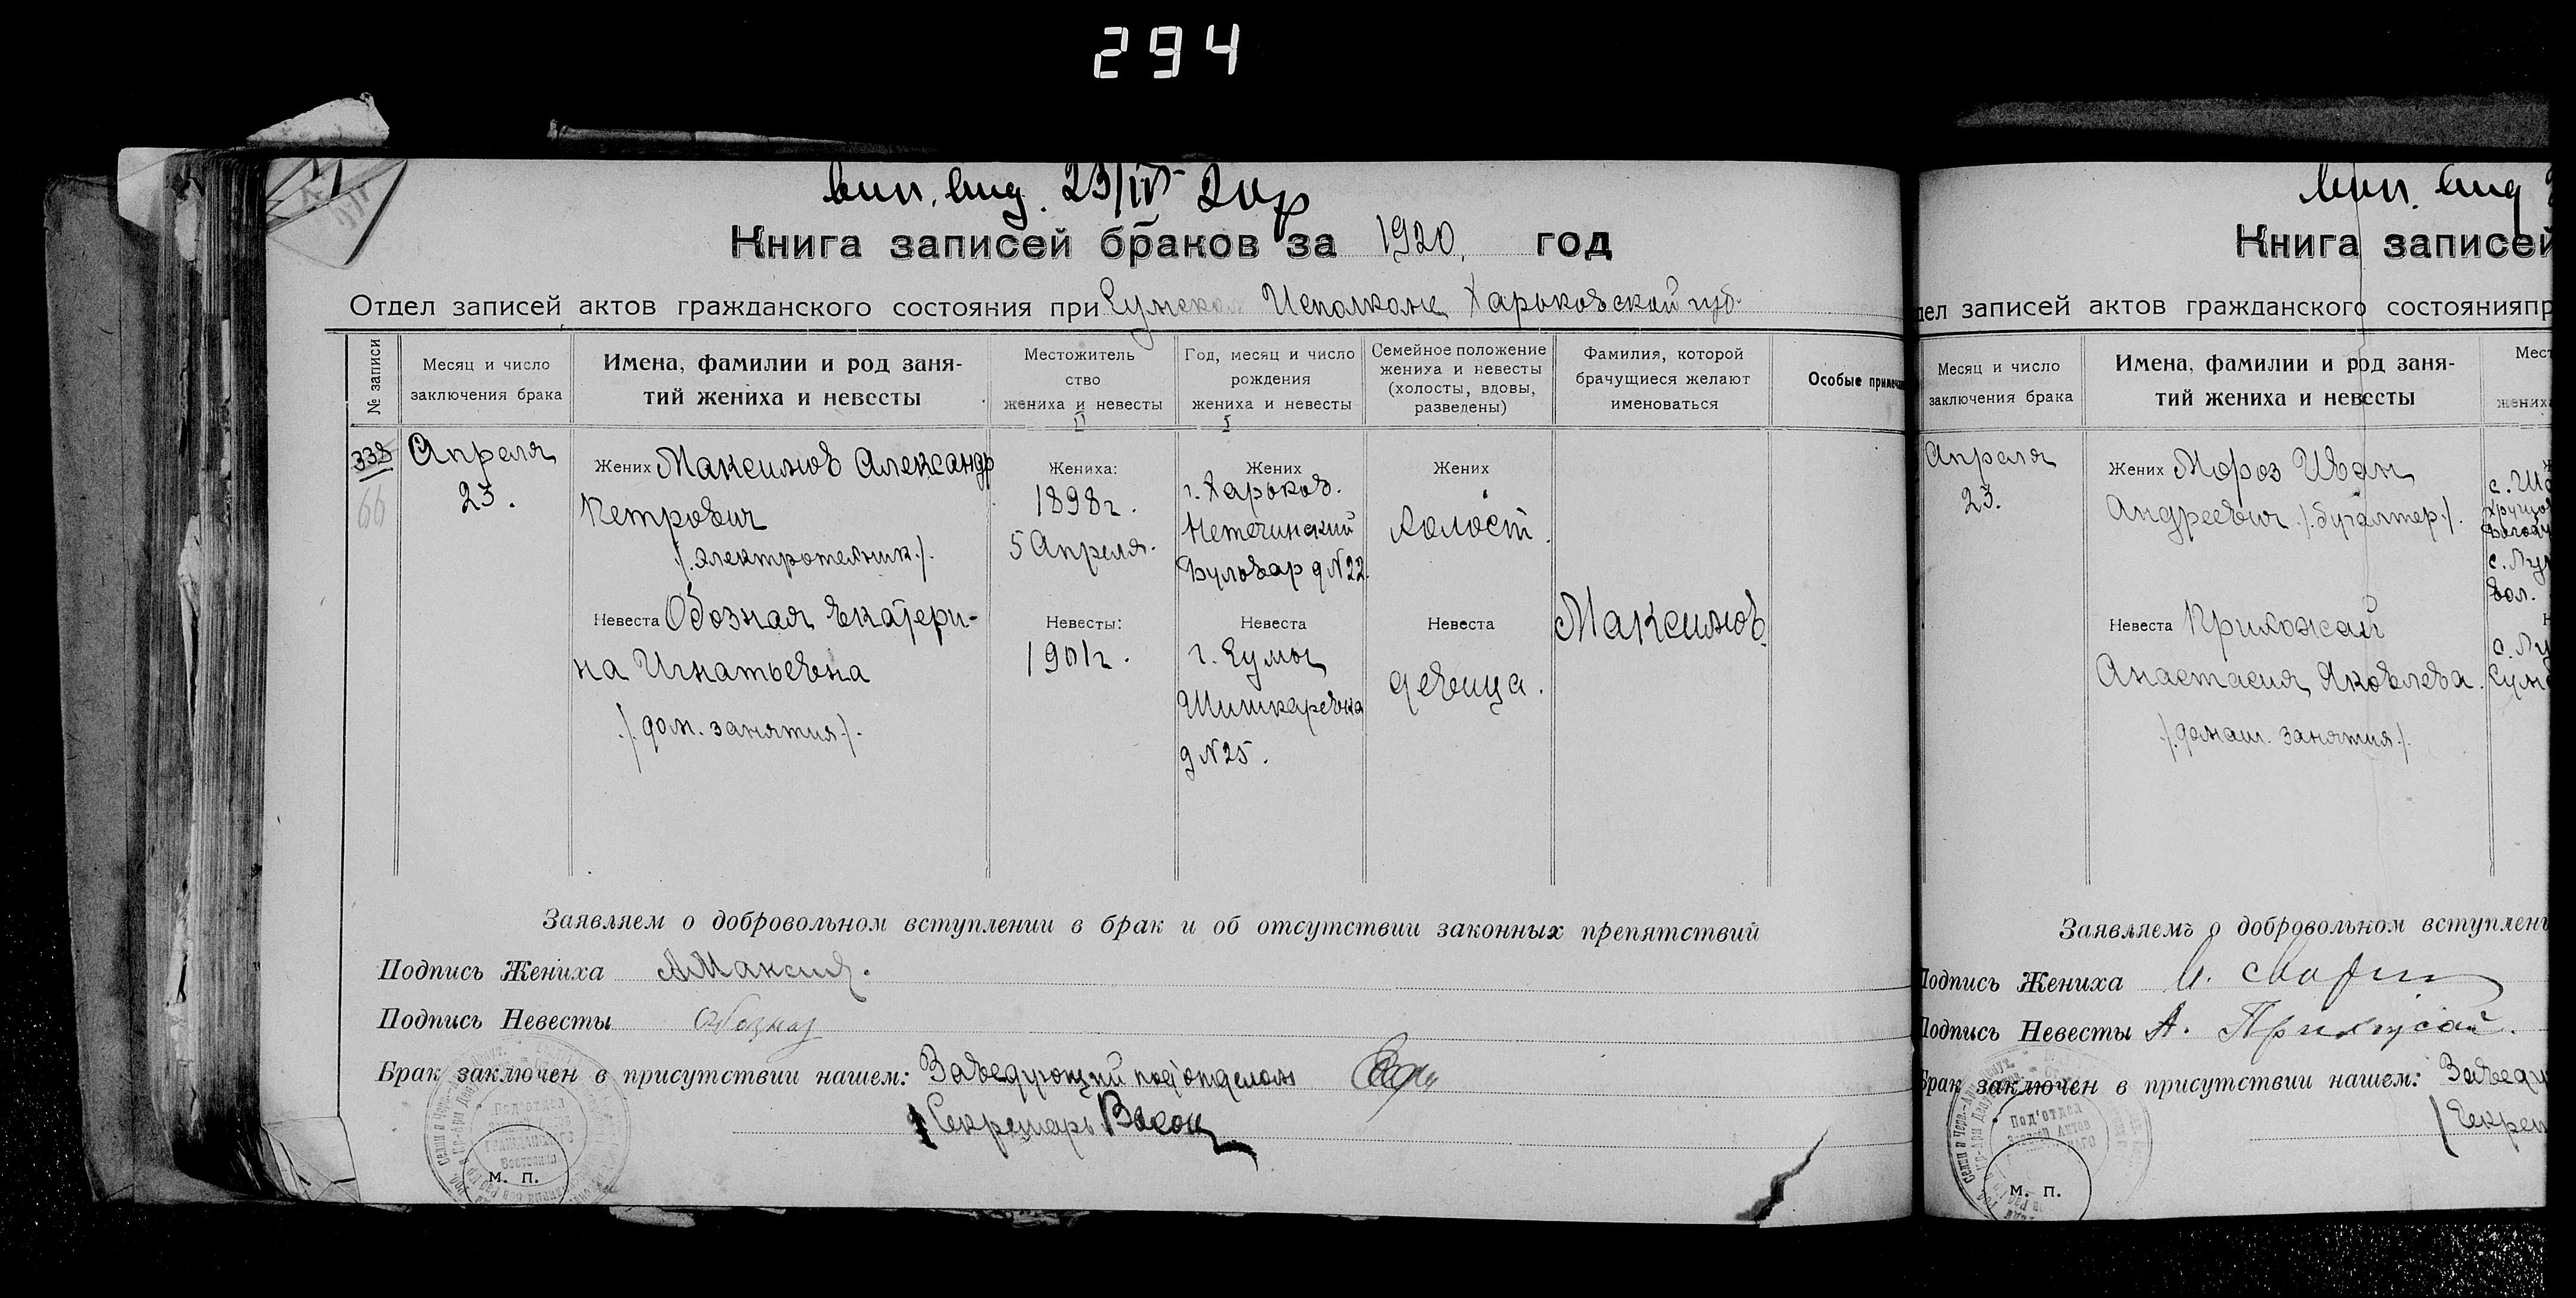 294
вып. вид. 23/IV 20 г
Книга записей браков за 1920. год
Отдел записей актов гражданского состояния при Сумском Исполкоме Харьковской губ.
№ записи
Месяц и число
заключения брака
Имена, фамилии и род заня-
тий жениха и невесты
Местожитель
ство
жениха и невесты
Год, месяц и число
рождения
жениха и невесты
Семейное положение
жениха и невесты
(холосты, вдовы,
разведены)
Фамилия, которой
брачущиеся желают
именоваться
Особые примеча
338
66
Апреля
23.
Жених Максимов Александр
Петрович
/.электротехник./.
Невеста Обозная Екатери-
на Игнатьевна
./.дом. занятия./.
Жениха:
1898 г.
5 Апреля.
Невесты:
1901 г.
Жених
г. Харьков.
Нетечинский
Бульвар д N 22.
Невеста
г. Сумы
Шишкаревка
д N 25.
Жених
Холост.
Невеста
девица.
Максимов
Заявляем о добровольном вступлении в брак и об отсутствии законных препятствий
Подпись Жениха АМаксим.
Подпись Невесты Обозная
Брак заключен в присутствии нашем: Заведующий подотделом
Секретарь
Под'отдел
м. п.
вып. вид
Книга записей
дел записей актов гражданского состоянияпр
Месяц и число
заключения брака
Имена, фамилии и род заня-
тий жениха и невесты
Мест
жениха
Апреля
23.
Жених Мороз Иван
Андреевич /.бухгалтер./.
Невеста Прихожай
Анастасия Яковлева.
/.домаш. занятия./.
с.
вол.
Заявляемъ о добровольном вступлени
Подпись Жениха И.
Подпись Невесты А. Прихожай.
Брак заключен в присутствии нашем: Заведу
Секрет
Под'отдел
м. п.